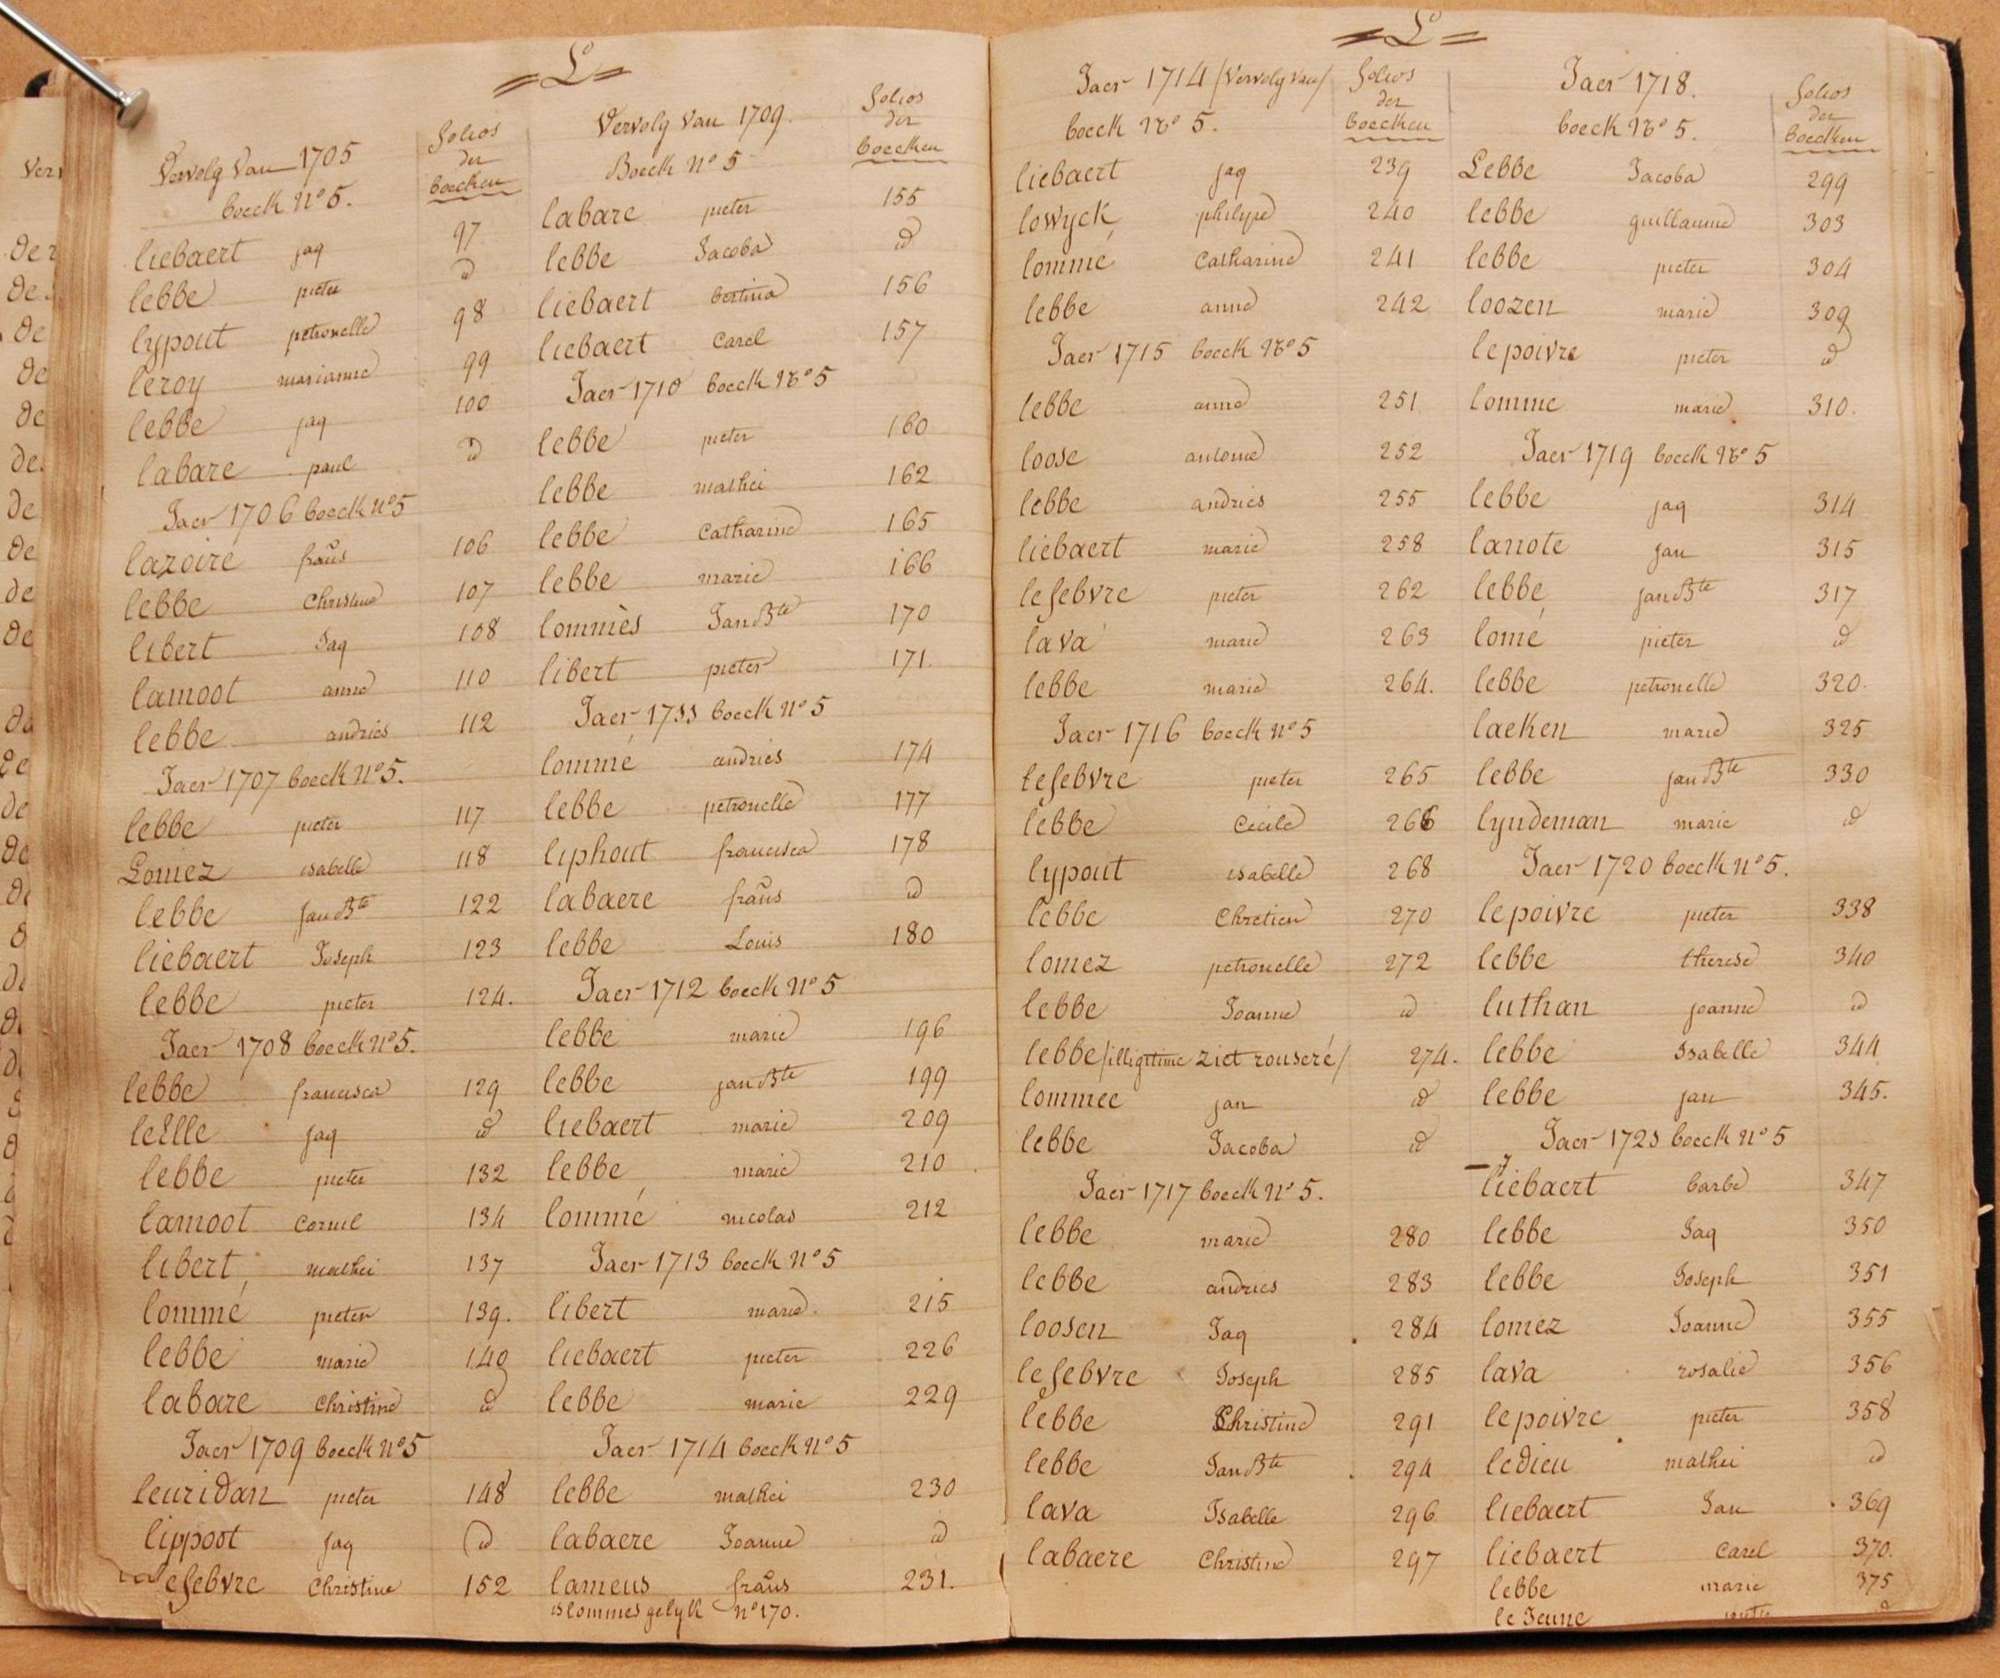 =L=
Vervolg van 1705
boeck N° 5.
folios
der
boecken
liebaert jaq 97
lebbe pieter id
lypout petronelle 98
leroy marianne 99
lebbe jaq 100
labare paul id
Jaer 1706 boeck N° 5
lazoire frans 106
lebbe Christine 107
libert Jaq 108
lamoot anne 110
lebbe andries 112
Jaer 1707 boeck N° 5.
lebbe pieter 117
Lomez isabelle 118
lebbe jan Bte 122
liebaert Joseph 123
lebbe pieter 124.
Jaer 1708 boeck N° 5.
lebbe francisca 129
leElle jaq id
lebbe pieter 132
lamoot Corneel 134
libert mathei 137
lommé pieter 139.
lebbe marie 140
labare Christine id
Jaer 1709 boeck N° 5
leuridan pieter 148
lippoot jaq id
lefebvre Christine 152
Vervolg van 1709.
Boeck N° 5
folios
der
boecken
labare pieter 155
lebbe Jacoba id
liebaert bertina 156
liebaert Carel 157
Jaer 1710 boeck N° 5
lebbe pieter 160
lebbe mathei 162
lebbe Catharine 165
lebbe marie 166
lommès Jan Bte 170
libert pieter 171.
Jaer 1711 boeck N° 5
lommé andries 174
lebbe petronelle 177
liphout francisca 178
labaere frans id
lebbe Louis 180
Jaer 1712 boeck N° 5
lebbe marie 196
lebbe jan Bte 199
liebaert marie 209
lebbe marie 210
lommé nicolas 212
Jaer 1713 boeck N° 5
libert marie 215
liebaert pieter 226
lebbe marie 229
Jaer 1714 boeck N° 5
lebbe mathei 230
labaere Joanne id
lameus frans 231.
is lommes gelyk N° 170.
=L=
Jaer 1714 /Vervolg van/
boeck N° 5.
folios
der
boecken
liebaert jaq 239
lowyck philype 240
lommé Catharine 241
lebbe anne 242
Jaer 1715 boeck N° 5
lebbe anne 251
loose antone 252
lebbe andries 255
liebaert marie 258
lefebvre pieter 262
lava marie 263
lebbe marie 264.
Jaer 1716 boeck N° 5
lefebvre pieter 265
lebbe Cecile 266
lypout isabelle 268
lebbe Chretien 270
lomez petronelle 272
lebbe Joanne id
lebbe /illigitime ziet rouseré/ 274.
lommee jan id
lebbe Jacoba id
Jaer 1717 boeck N° 5.
lebbe marie 280
lebbe andries 283
loosen Jaq 284
lefebvre Joseph 285
lebbe Christine 291
lebbe Jan Bte 294
lava Isabelle 296
labaere Christine 297
Jaer 1718.
boeck N° 5.
folios
der
boecken
Lebbe Jacoba 299
lebbe guillaume 303
lebbe pieter 304
loozen marie 309
lepoivre pieter id
lomme marie 310.
Jaer 1719 boeck N° 5
lebbe jaq 314
lanote jan 315
lebbe jan Bte 317
lomé pieter id
lebbe petronelle 320.
laeken marie 325
lebbe jan Bte 330
lyndeman marie id
Jaer 1720 boeck N° 5.
lepoivre pieter 338
lebbe therese 340
luthan joanne id
lebbe Isabelle 344
lebbe jan 345.
Jaer 1721 boeck N° 5
liebaert barbe 347
lebbe Jaq 350
lebbe Joseph 351
lomez Joanne 355
lava rosalie 356
lepoivre pieter 358
ledieu mathei id
liebaert Jan 369
liebaert Carel 370.
lebbe marie 375
le Jeune id